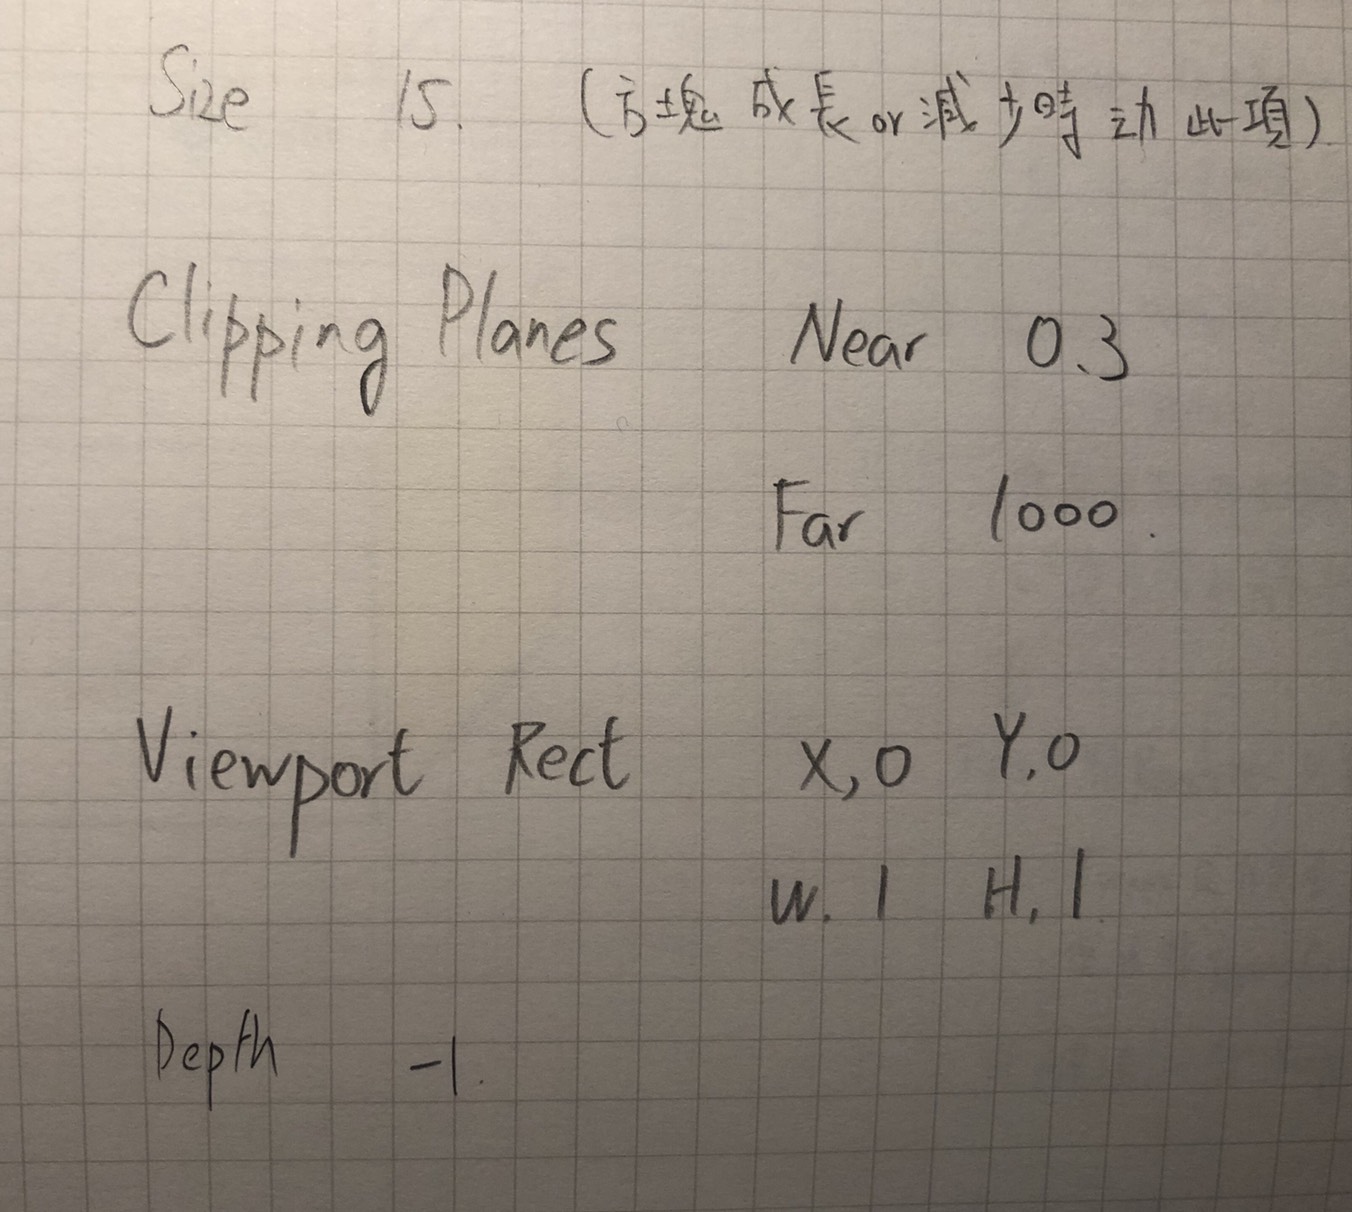 Size 15. (方塊成長or減少時动此項)
Clipping Planes Near 0.3
Far 1000.
Viewport Rect X,0 Y.0
W. 1 H. 1
Depth -1.